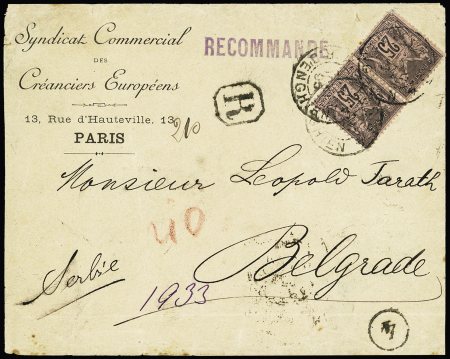 Syndicat Commercial
DES
Créanciers Européens
13, Rue d'Hauteville, 13
PARIS
RECOMMANDÉ
R
25
25
210
Monsieur Leopold Tarath
40
Belgrade
Serbie
1933